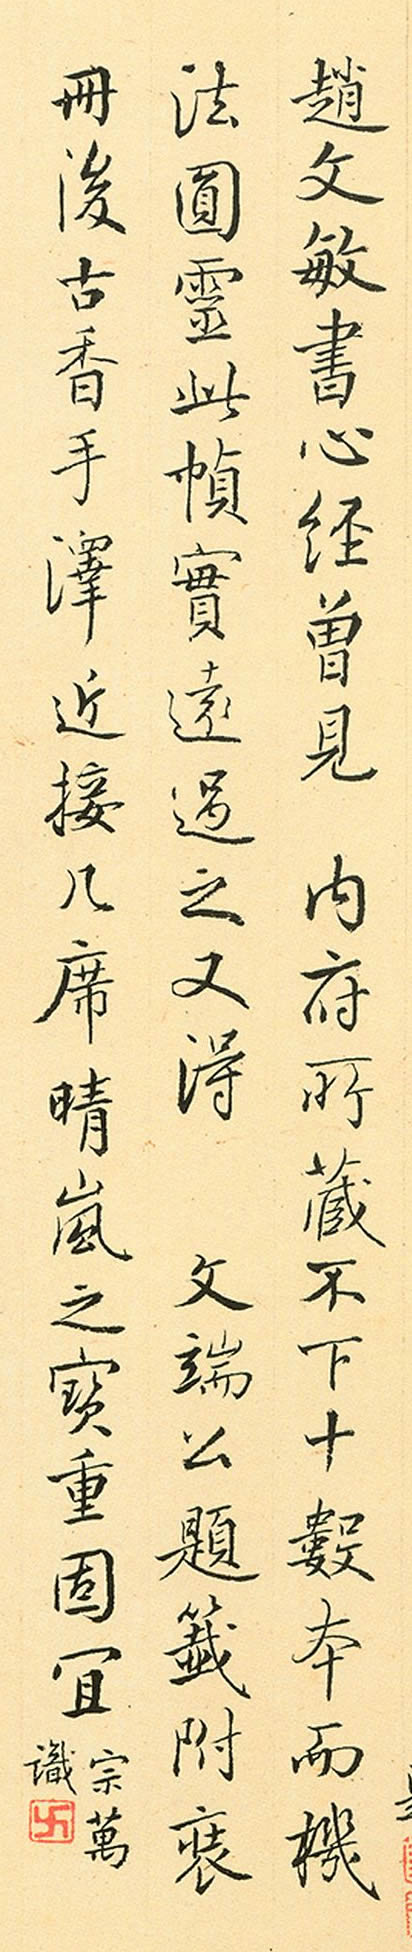 趙文敏書心經曾見 內府所藏不下十數本而機
法圓靈此幀實遠過之又得 文端公題籤附裝
冊後古香手澤近接几席晴嵐之寶重固宜
宗萬
識
卐